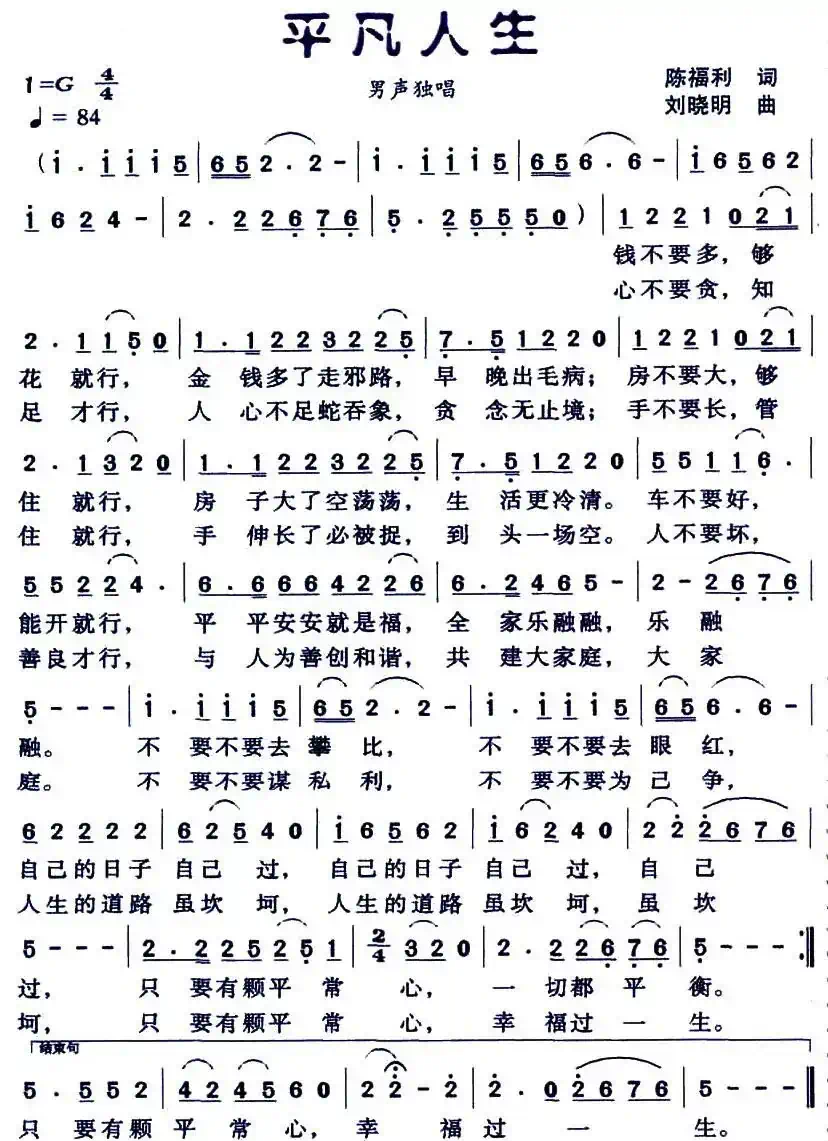 平凡人生
1=G 4/4
男声独唱
陈福利 词
♩= 84
刘晓明 曲
(i . i i i 5 | 6 5 2 . 2 - | i . i i i 5 | 6 5 6 . 6 - | i 6 5 6 2
i 6 2 4 - | 2 . 2 2 6 7 6 | 5 . 2 5 5 5 0 ) | 1 2 2 1 0 2 1
钱不要多，够
心不要贪，知
2 . 1 1 5 0 | 1 . 1 2 2 3 2 2 5 | 7 . 5 1 2 2 0 | 1 2 2 1 0 2 1
花 就行， 金 钱多了走邪路， 早 晚出毛病；房不要大，够
足 才行， 人 心不足蛇吞象， 贪 念无止境；手不要长，管
2 . 1 3 2 0 | 1 . 1 2 2 3 2 2 5 | 7 . 5 1 2 2 0 | 5 5 1 1 6 .
住 就行， 房 子大了空荡荡， 生 活更冷清。车不要好，
住 就行， 手 伸长了必被捉， 到 头一场空。人不要坏，
5 5 2 2 4 . | 6 . 6 6 6 4 2 2 6 | 6 . 2 4 6 5 - | 2 - 2 6 7 6
能开就行， 平 平安安就是福， 全 家乐融融， 乐 融
善良才行， 与 人为善创和谐， 共 建大家庭， 大 家
5 - - - | i . i i i 5 | 6 5 2 . 2 - | i . i i i 5 | 6 5 6 . 6 -
融。 不 要不要去 攀 比， 不 要不要去 眼 红，
庭。 不 要不要谋 私 利， 不 要不要为 己 争，
6 2 2 2 2 | 6 2 5 4 0 | i 6 5 6 2 | i 6 2 4 0 | 2 2 2 6 7 6
自己的日子 自己 过， 自己的日子 自己 过， 自 己
人生的道路 虽坎 坷， 人生的道路 虽坎 坷， 虽 坎
5 - - - | 2 . 2 2 2 5 2 5 1 | 2/4 3 2 0 | 2 . 2 2 6 7 6 | 5 - - - :‖
过， 只 要有颗平 常 心， 一 切都 平 衡。
坷， 只 要有颗平 常 心， 幸 福过 一 生。
结束句
5 . 5 5 2 | 4 2 4 5 6 0 | 2 2 - 2 | 2 . 0 2 6 7 6 | 5 - - - ‖
只 要有颗 平 常 心， 幸 福 过 一 生。